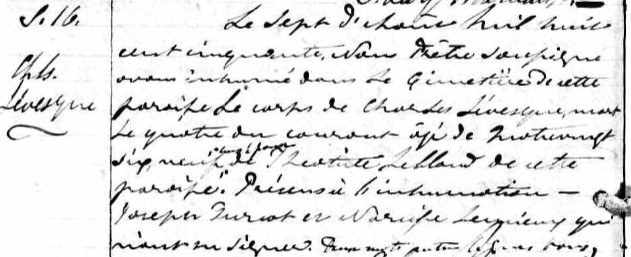 S. 16.
Le Sept d'Août mil huit
cent cinquante, Nous Prêtre soussigné
Chls.
avons inhumé dans le Cimetière de cette
Lévesque
paroisse le corps de Charles Lévesque, mort
le quatre du courant âgé de quatrevingt
six, veuf de Théotiste Leblond de cette
paroisse. Présens à l'inhumation —
Joseph Turcot et Narcisse Lemieux qui
n'ont su signer.